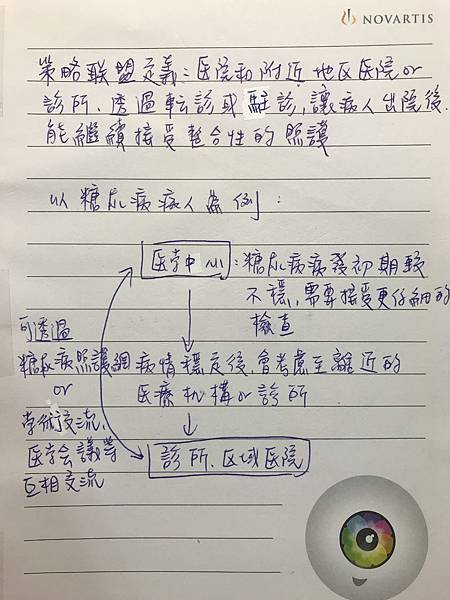 NOVARTIS
策略联盟定義：医院和附近地区医院or
診所、透過転診或駐診，讓病人出院後
能繼續接受整合性的照護
以糖尿病病人為例：
医学中心：糖尿病病發初期較
不穩，需要接受更仔細的
檢查
可透過
糖尿病照護網
or
学術交流、
医学会議等
互相交流
病情穩定後，會考慮至離近的
医療机構or診所
診所、区域医院